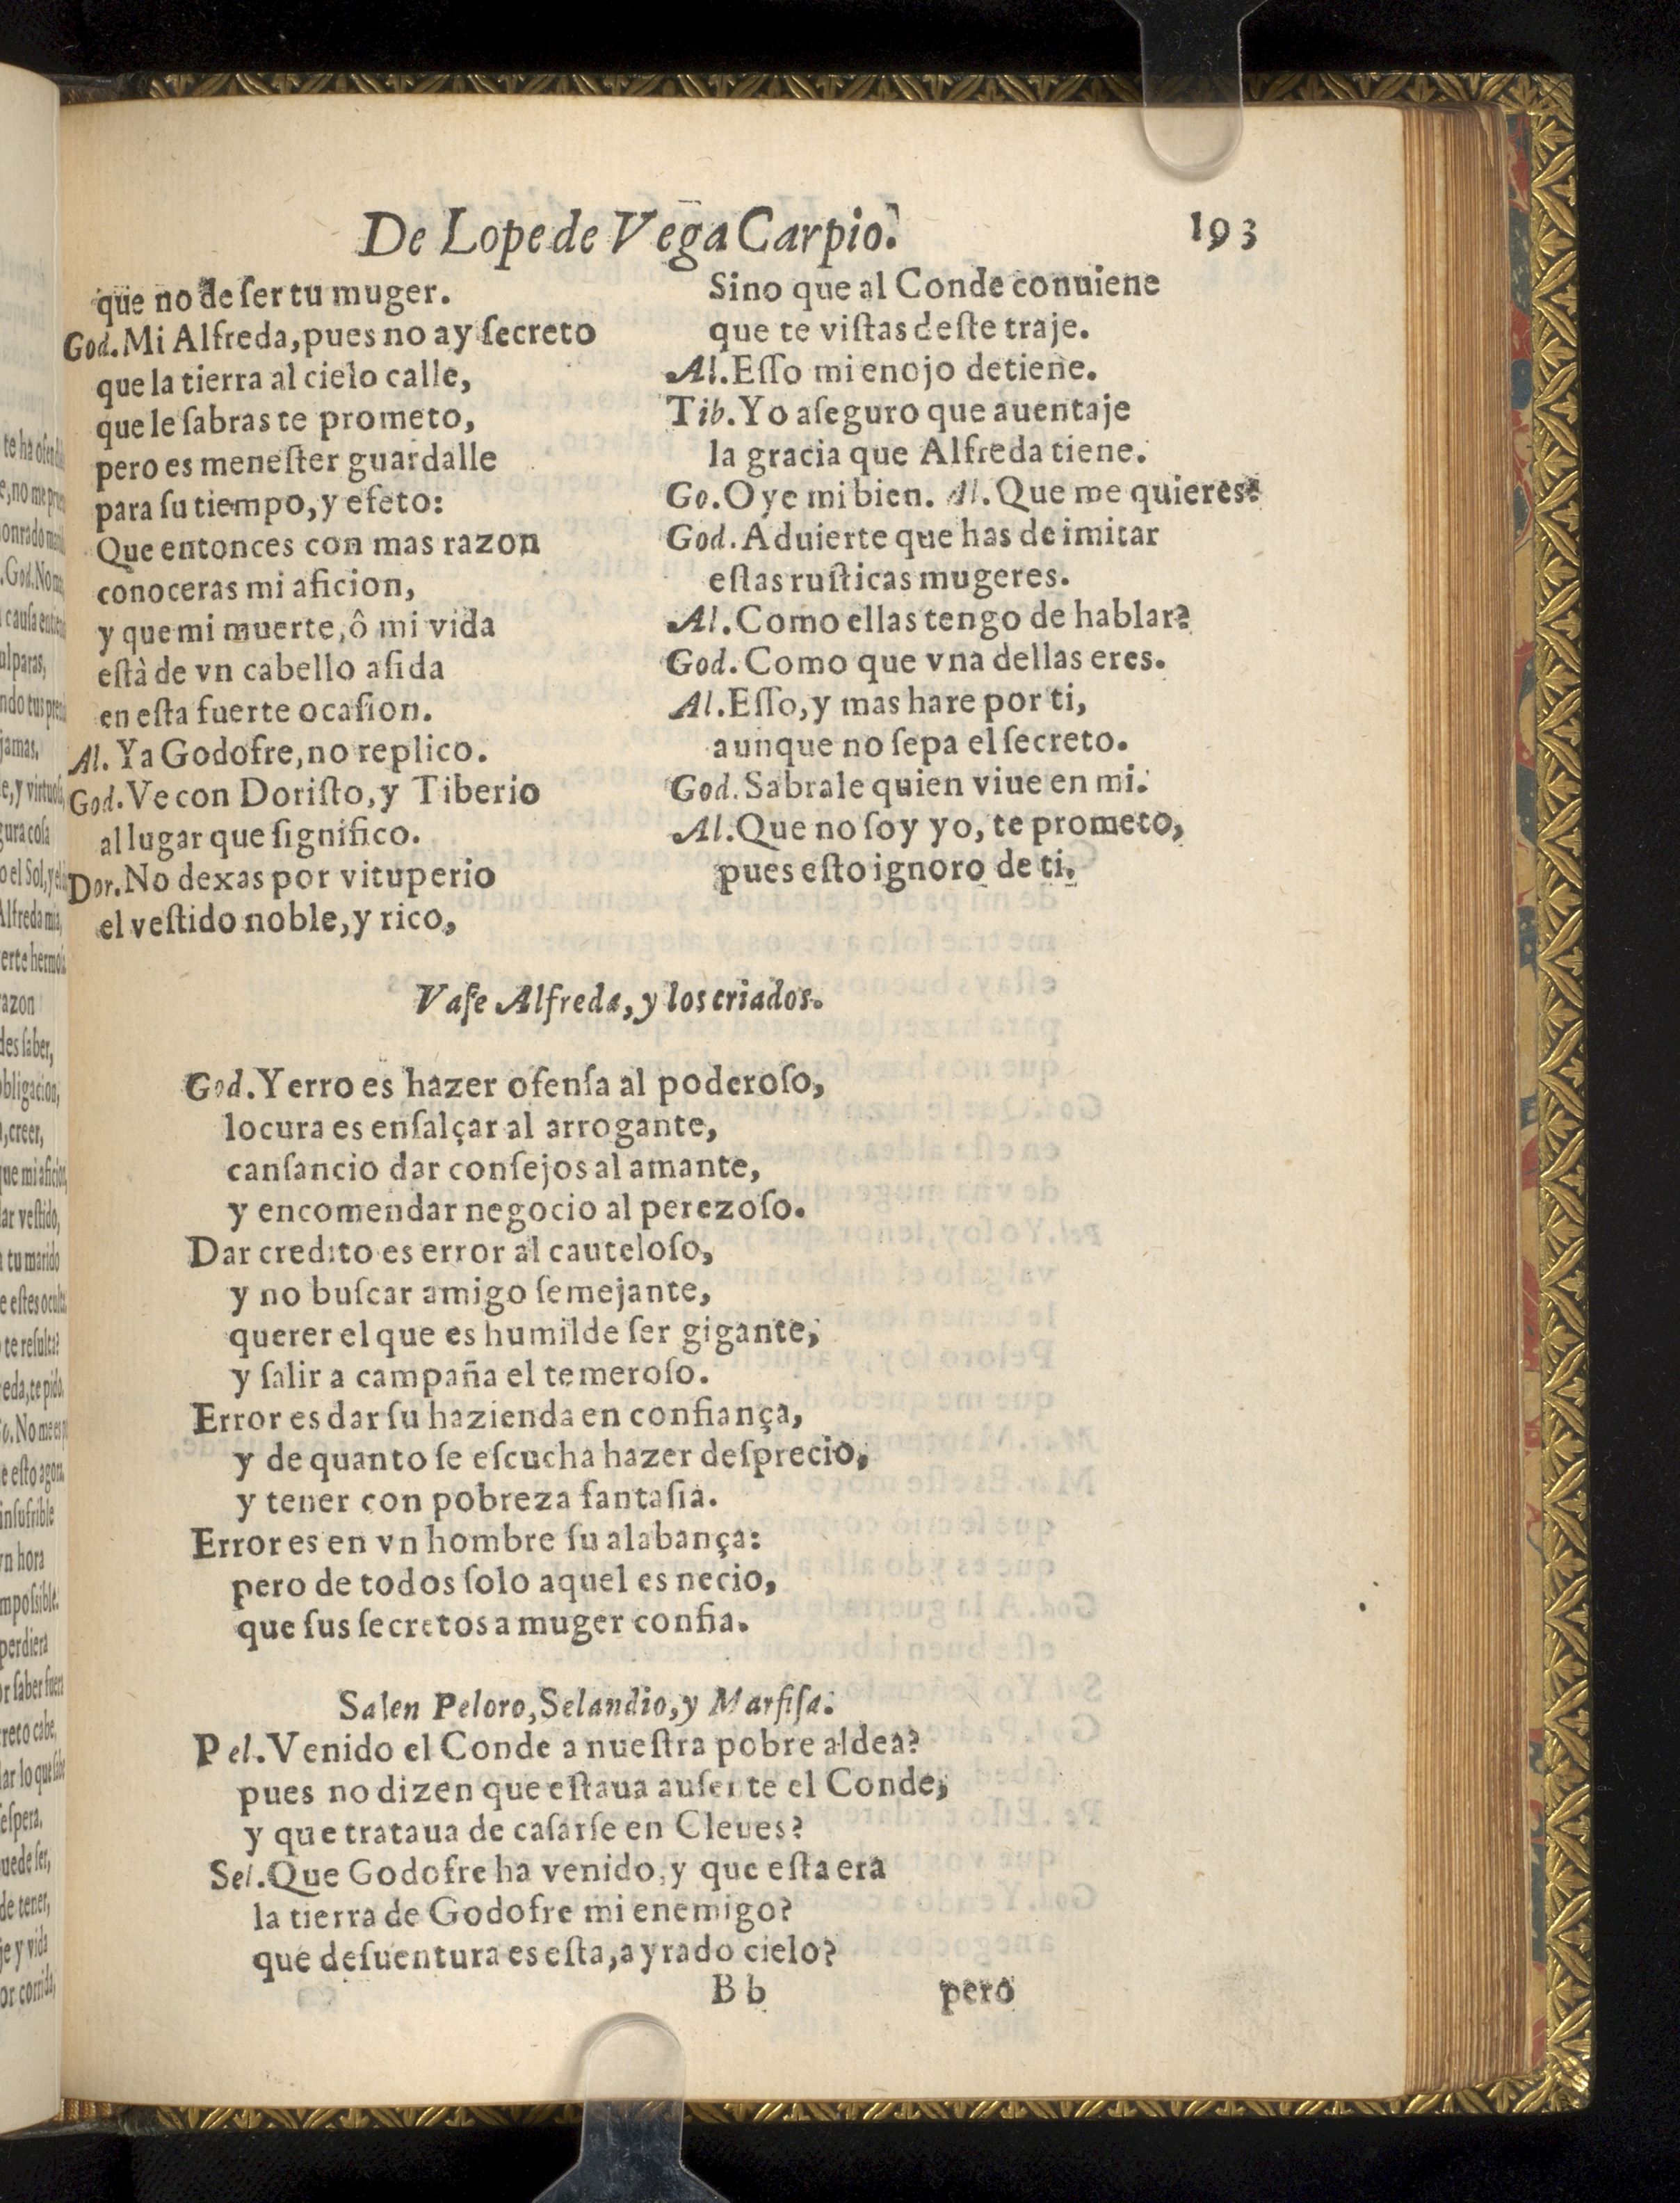 De Lope de Vega Carpio.
193
que no de ſer tu muger.
God. Mi Alfreda, pues no ay ſecreto
que la tierra al cielo calle,
que le ſabras te prometo,
pero es meneſter guardalle
para ſu tiempo, y efeto:
Que entonces con mas razon
conoceras mi aficion,
y que mi muerte, ô mi vida
eſtà de vn cabello aſida
en eſta fuerte ocaſion.
Al. Ya Godofre, no replico.
God. Ve con Doriſto, y Tiberio
al lugar que ſignifico.
Dor. No dexas por vituperio
el veſtido noble, y rico,
Sino que al Conde conuiene
que te viſtas deſte traje.
Al. Eſſo mi enojo detiene.
Tib. Yo aſeguro que auentaje
la gracia que Alfreda tiene.
Go. Oye mi bien. Al. Que me quieres?
God. Aduierte que has de imitar
eſtas ruſticas mugeres.
Al. Como ellas tengo de hablar?
God. Como que vna dellas eres.
Al. Eſſo, y mas hare por ti,
aunque no ſepa el ſecreto.
God. Sabrale quien viue en mi.
Al. Que no ſoy yo, te prometo,
pues eſto ignoro de ti.
Vaſe Alfreda, y los criados.
God. Yerro es hazer ofenſa al poderoſo,
locura es enſalçar al arrogante,
canſancio dar conſejos al amante,
y encomendar negocio al perezoſo.
Dar credito es error al cauteloſo,
y no buſcar amigo ſemejante,
querer el que es humilde ſer gigante,
y ſalir a campaña el temeroſo.
Error es dar ſu hazienda en confiança,
y de quanto ſe eſcucha hazer deſprecio,
y tener con pobreza fantaſia.
Error es en vn hombre ſu alabança:
pero de todos ſolo aquel es necio,
que ſus ſecretos a muger confia.
Salen Peloro, Selandio, y Marfiſa.
Pel. Venido el Conde a nueſtra pobre aldea?
pues no dizen que eſtaua auſente el Conde,
y que trataua de caſarſe en Cleues?
Sel. Que Godofre ha venido, y que eſta era
la tierra de Godofre mi enemigo?
que deſuentura es eſta, ayrado cielo?
Bb
pero